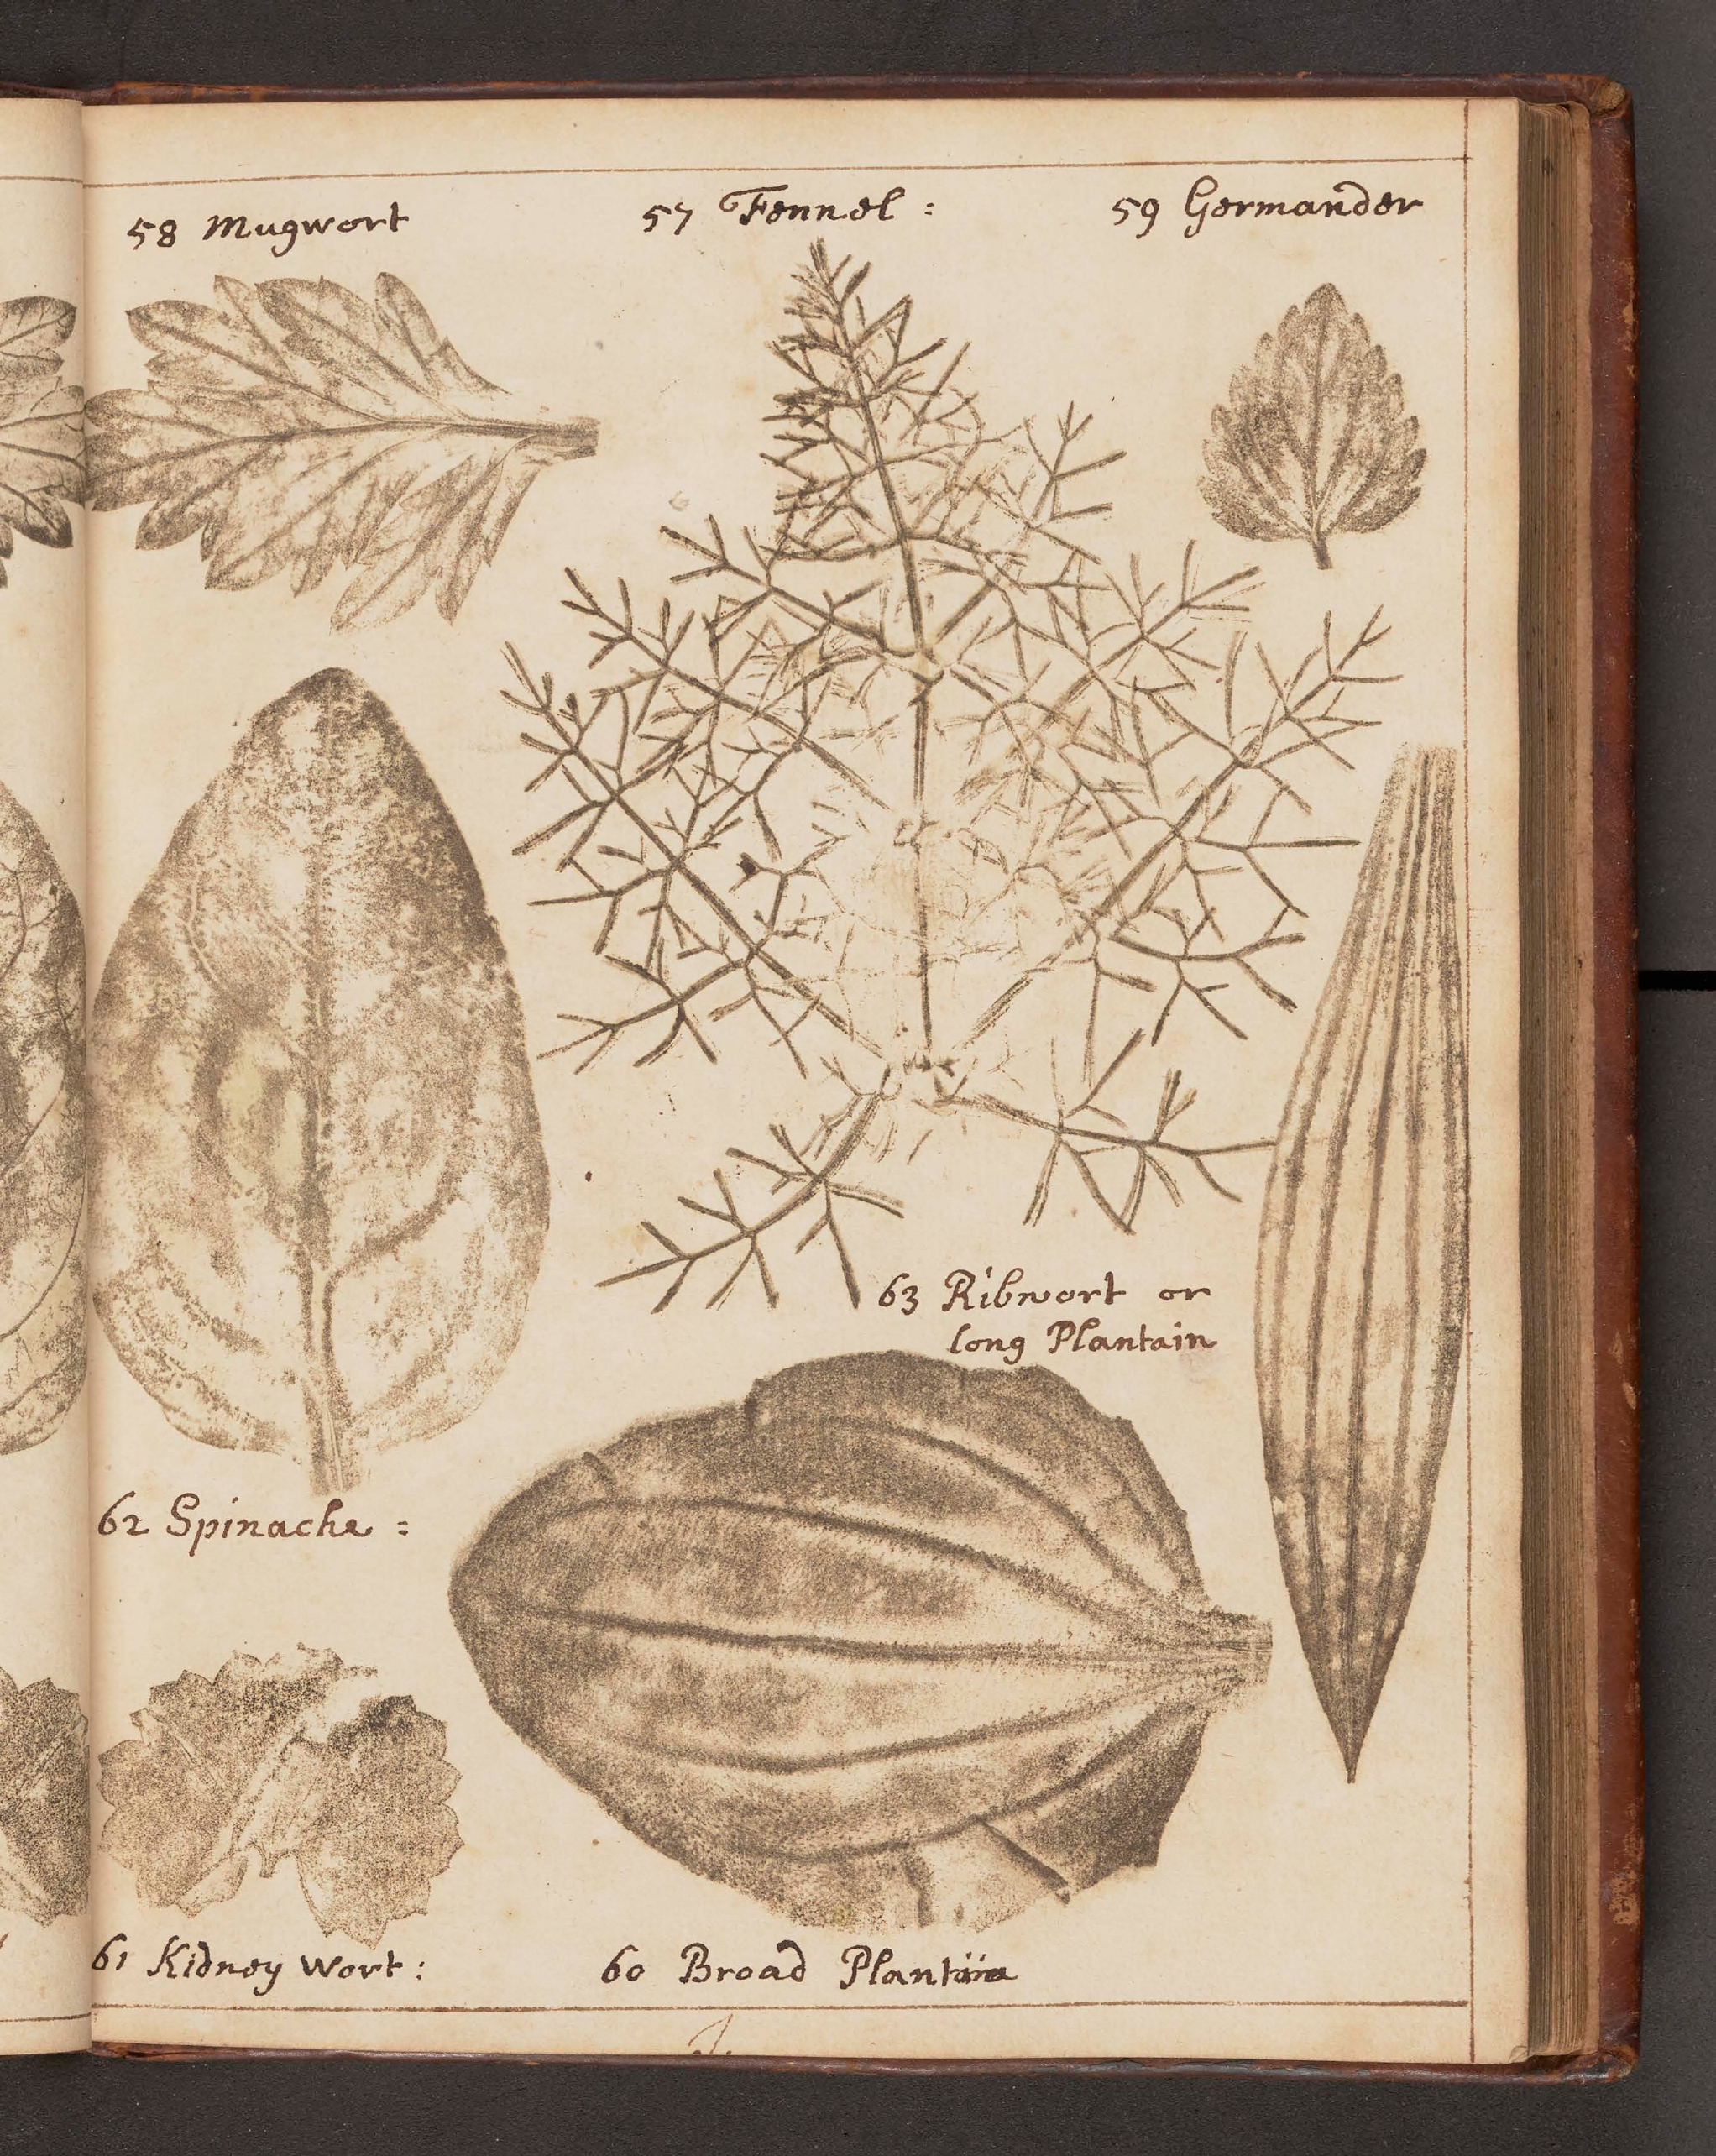 58 Mugwort
57 Fennel :
59 Germander
63 Ribwort or
long Plantain
62 Spinache =
61 Kidney Wort :
60 Broad Plantain